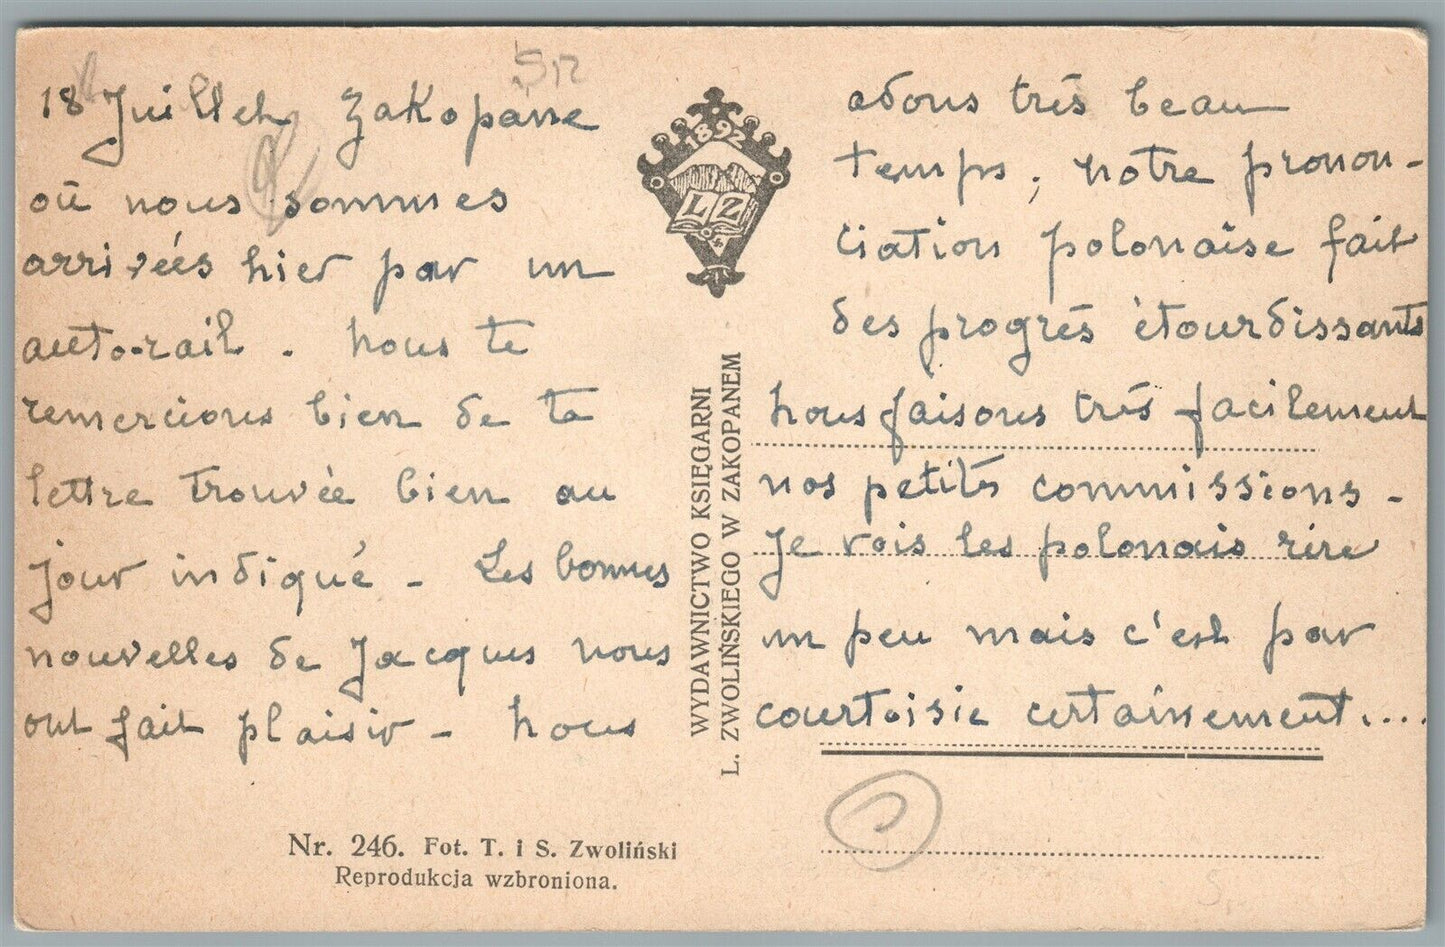 18 Juillet Zakopane
où nous sommes
arrivées hier par un
auto-rail. nous te
remercions bien de ta
lettre trouvée bien au
jour indiqué - Les bonnes
nouvelles de Jacques nous
ont fait plaisir - nous
1892
L Z
WYDAWNICTWO KSIĘGARNI
L. ZWOLIŃSKIEGO W ZAKOPANEM
avons très beau
temps, notre pronon-
ciation polonaise fait
des progrès étourdissants
nous faisons très facilement
nos petites commissions -
Je vois les polonais rire
un peu mais c'est par
courtoisie certainement....
Nr. 246. Fot. T. i S. Zwoliński
Reprodukcja wzbroniona.